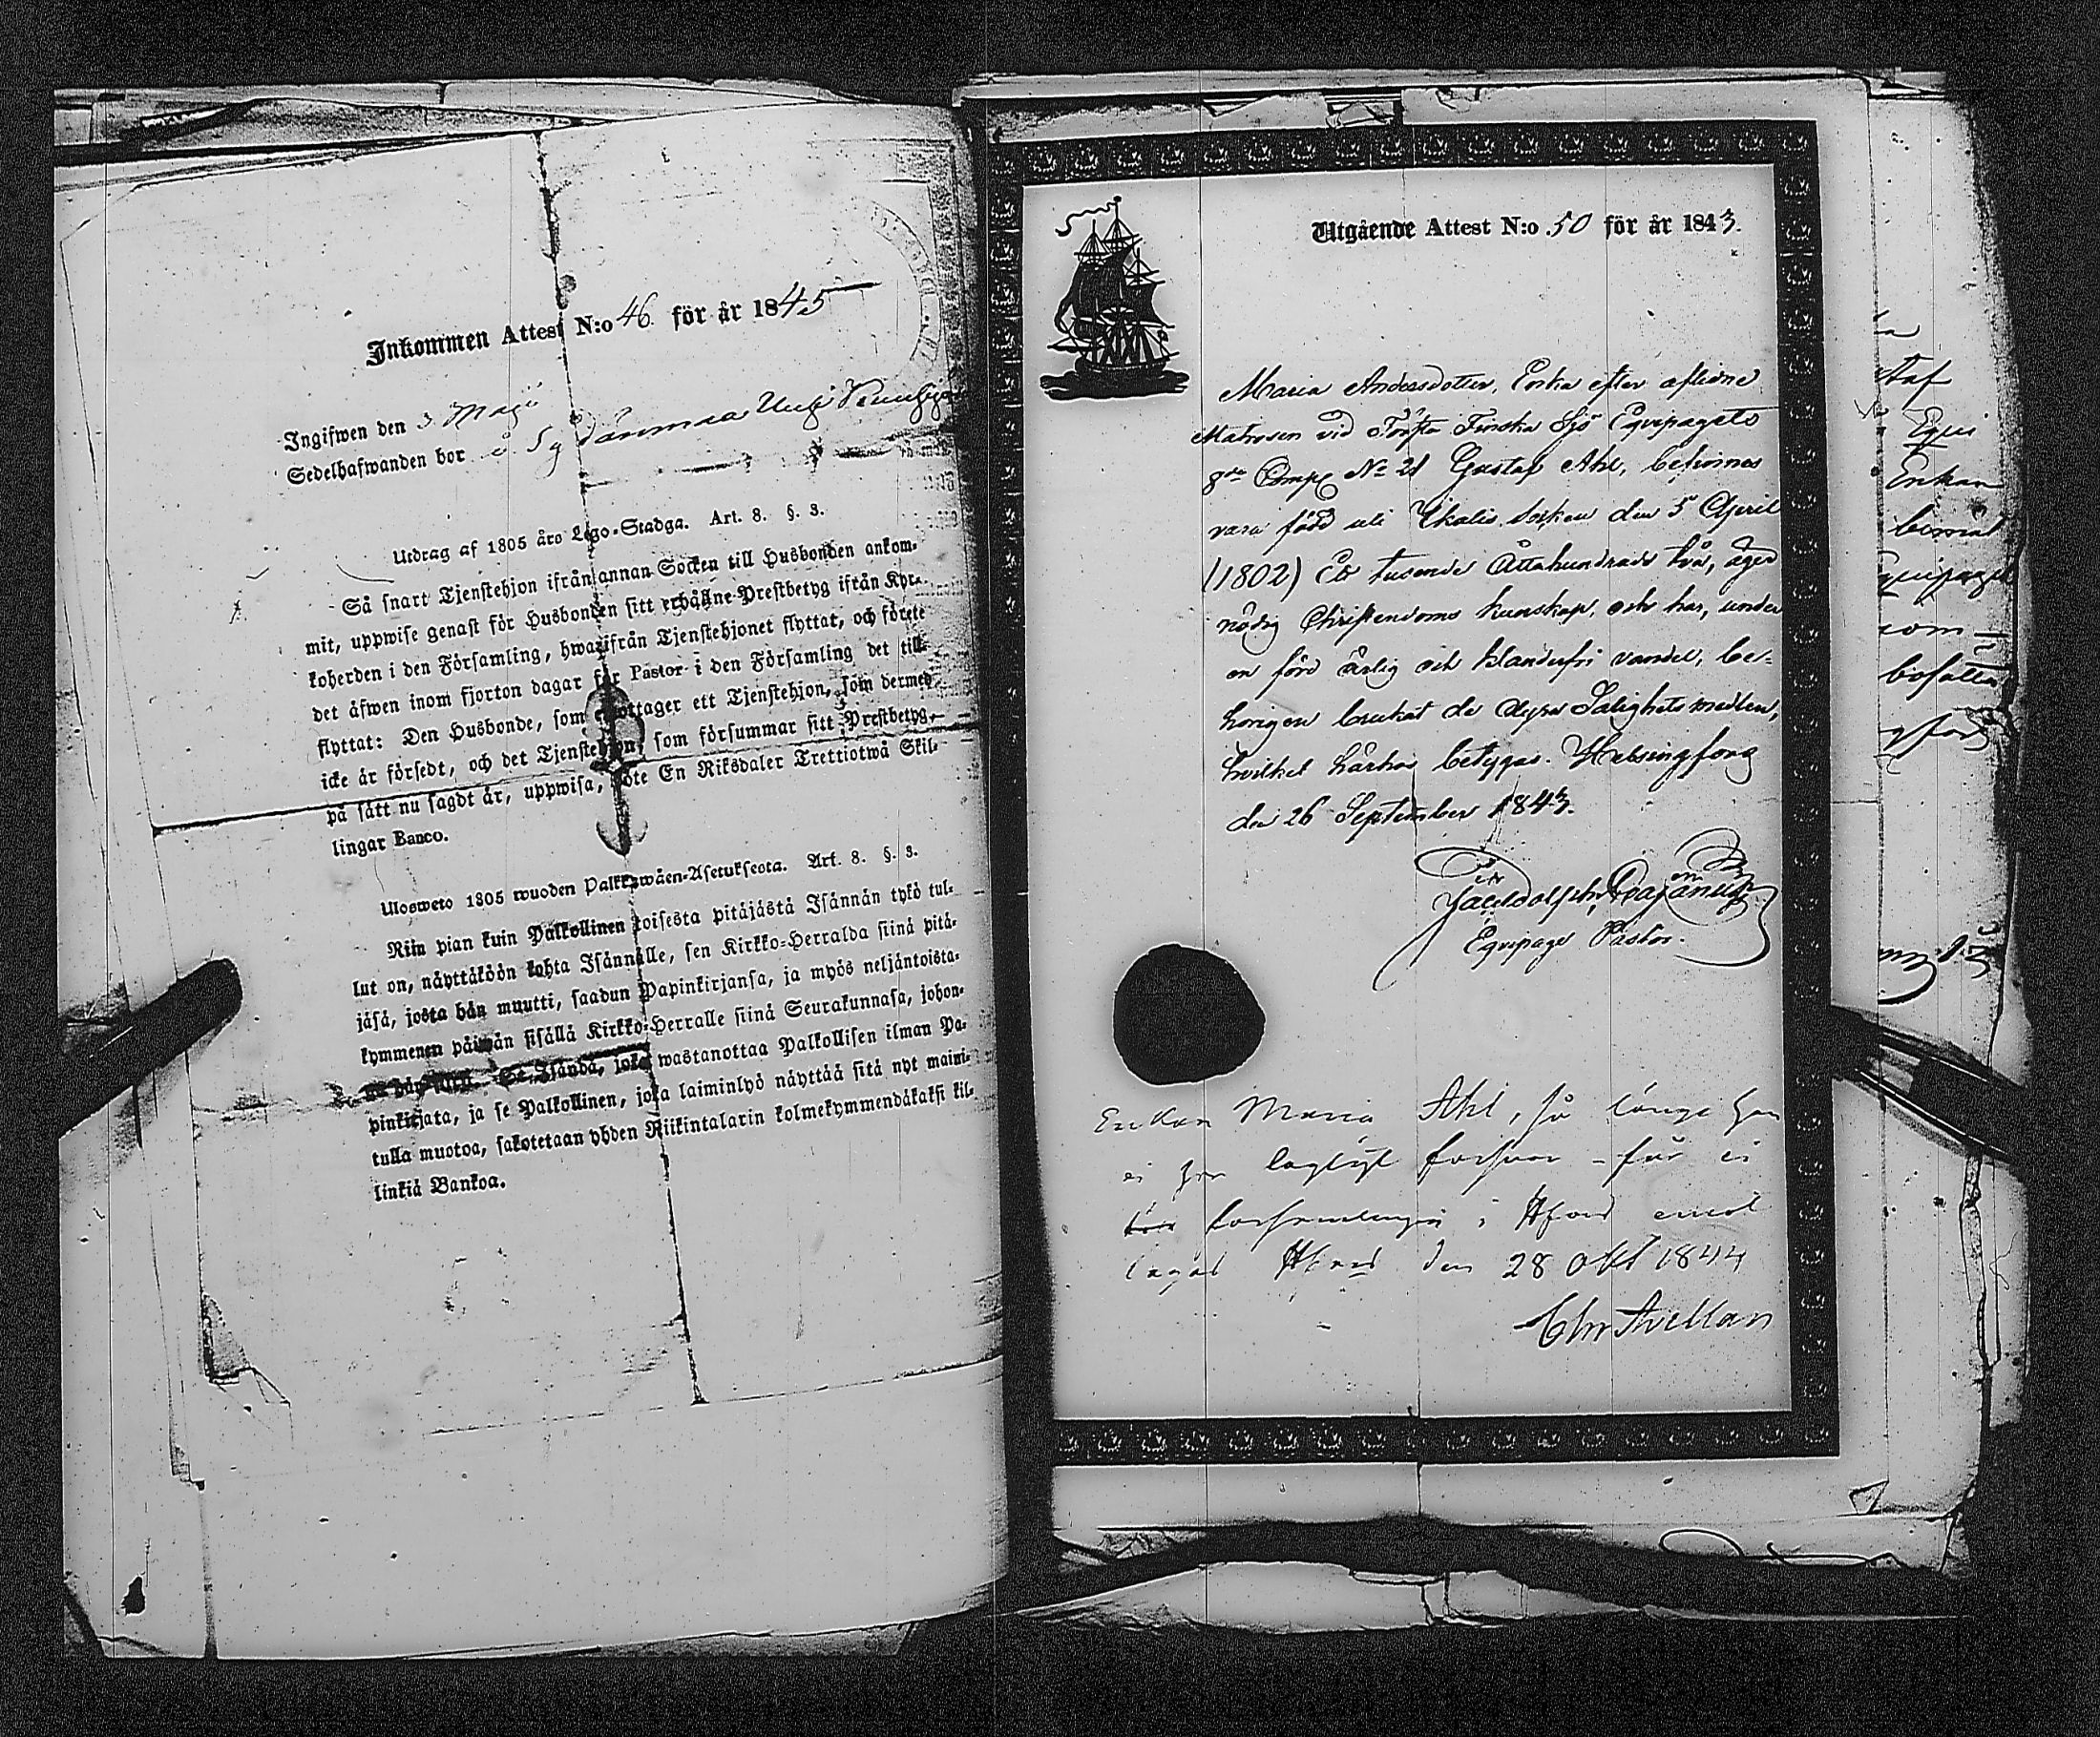 Inkommen Attest N:o 46. för år 1845
Ingifwen den 3 Maji
Sedelhafwanden bor
Utdrag af 1805 års Lego-Stadga. Art. 8. §. 3.
Så snart Tjenstehjon ifrån annan Socken till Husbonden ankom-
mit, uppwise genast för Husbonden sitt erhållne Prestbetyg ifrån Kyr-
koherden i den Församling, hwarifrån Tjenstehjonet flyttat, och förete
det äfwen inom fjorton dagar för Pastor i den Församling det till-
flyttat: Den Husbonde, som emottager ett Tjenstehjon, som dermed
icke är försedt, och det Tjenstehjon, som försummar sitt Prestbetyg,
på sätt nu sagdt är, uppwisa, böte En Riksdaler Trettiotwå Skil-
lingar Banco.
Ulosweto 1805 wuoden Palkkawäen-Asetuksesta. Art. 8. §. 3.
Niin pian kuin Palkollinen toisesta pitäjästä Isännän tykö tul-
lut on, näyttäköön kohta Isännälle, sen Kirkko-Herralda siinä pitä-
jäsä, josta hän muutti, saadun Papinkirjansa, ja myös neljäntoista-
kymmenen päiwän sisällä Kirkko-Herralle siinä Seurakunnasa, johon-
Se Isändä, joka wastanottaa Palkollisen ilman Pa-
pinkirjata, ja se Palkollinen, joka laiminlyö näyttää sitä nyt maini-
tulla muotoa, sakotetaan yhden Riikintalarin kolmekymmendäkaksi kil-
linkiä Bankoa.
Utgående Attest N:o 50 för år 1843.
Maria Andersdotter, Enka efter aflidne
Matrosen vid Första Finska Sjö Equipagets
8de Comp. No 21 Gustaf Ahl, befinnes
vara född uti Ikalis Socken den 5 April
(1802) Ett tusende Åttahundrade två, äger
nödig Christendoms kunskap, och har, under
en förd ärlig och klanderfri vandel, be-
hörigen brukat de dyra Salighetsmedlen,
hvilket härhos betygas. Helsingfors
den 26 September 1843.
Equipage Pastor.
Enkan Maria Ahl, så länge hon
ei har lagligt forsvar - får ei
i församlingen i Hfors emot
tagas Hfors den 28 Okt 1844
Chr Avellan